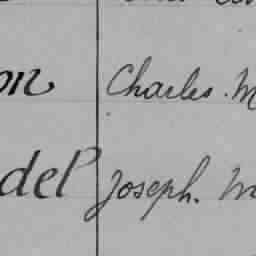 on Charles. M
del Joseph. M